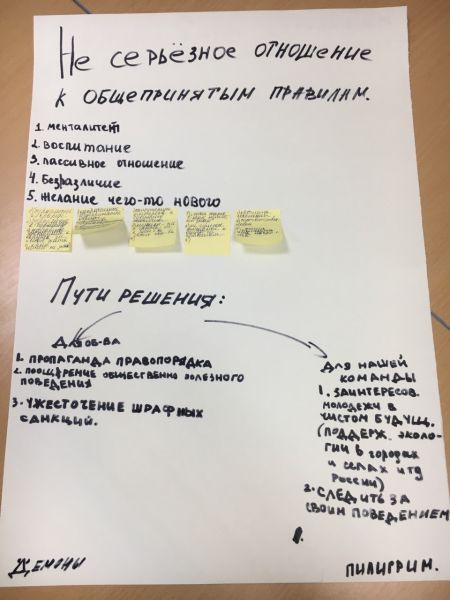 Не серьёзное отношение
к общепринятым правилам.
1. менталитет
2. воспитание
3. пассивное отношение
4. Безразличие
5. Желание чего-то нового
Пути решения:
Для об-ва
1. пропаганда правопорядка
2. поощрение общественно полезного
поведения
3. ужесточение штрафных
санкций.
Для нашей
команды
1. заинтересов.
молодежи в
чистом будущ.
(поддерж. эколо-
гии в городах
и селах итд
России)
2. следить за
своим поведением
Демоны
пилигрим.